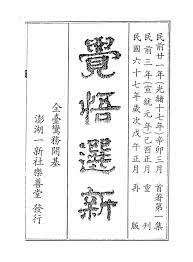 民前廿一年(光緒十七年)辛卯三月 首著第一集
民前三年(宣統元年)己酉正月 重刊
民國六十七年歲次戊午正月 再版
覺悟選新
全臺鸞務開基
澎湖一新社樂善堂 發行